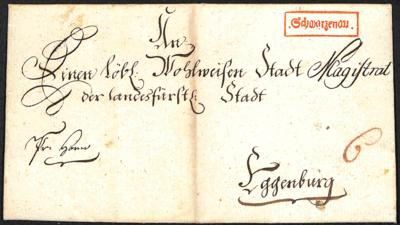 Schwarzenau.
An
Einen Löbl: Wohlweisen Stadt Magistrat
der landesfürstl: Stadt
Pr: Horn
6
Eggenburg